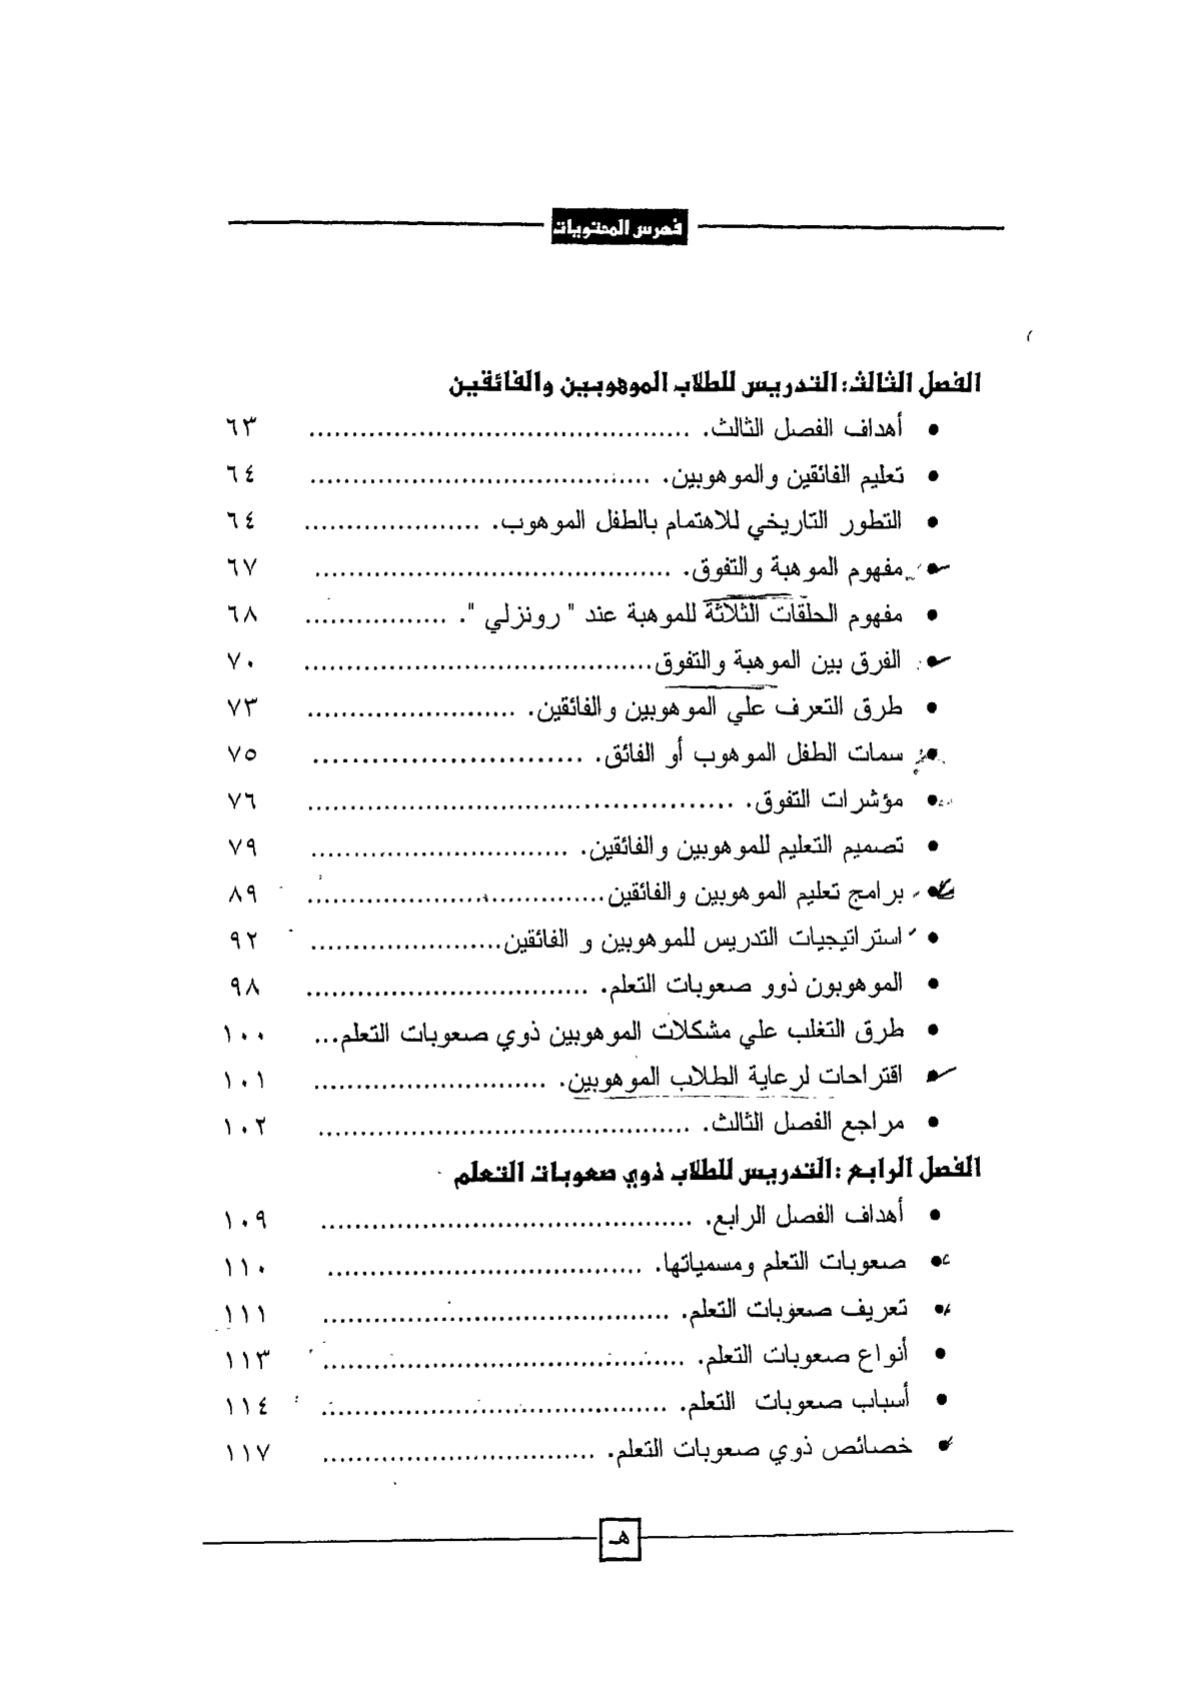 فهرس المحتويات
الفصل الثالث: التدريس للطلاب الموهوبين والفائقين
• أهداف الفصل الثالث. ............................................ ٦٣
• تعليم الفائقين والموهوبين. ....................................... ٦٤
• التطور التاريخي للاهتمام بالطفل الموهوب. ..................... ٦٤
• مفهوم الموهبة والتفوق. ......................................... ٦٧
• مفهوم الحلقات الثلاثة للموهبة عند " رونزلي ". ................. ٦٨
• الفرق بين الموهبة والتفوق......................................... ٧٠
• طرق التعرف علي الموهوبين والفائقين. ........................ ٧٣
• سمات الطفل الموهوب أو الفائق. ............................. ٧٥
• مؤشرات التفوق. ................................................. ٧٦
• تصميم التعليم للموهوبين والفائقين. .............................. ٧٩
• برامج تعليم الموهوبين والفائقين.................................. ٨٩
• استراتيجيات التدريس للموهوبين و الفائقين...................... ٩٢
• الموهوبون ذوو صعوبات التعلم. ................................. ٩٨
• طرق التغلب علي مشكلات الموهوبين ذوي صعوبات التعلم... ١٠٠
• اقتراحات لرعاية الطلاب الموهوبين. ........................... ١٠١
• مراجع الفصل الثالث. ........................................... ١٠٢
الفصل الرابع :التدريس للطلاب ذوي صعوبات التعلم
• أهداف الفصل الرابع. ........................................... ١٠٩
• صعوبات التعلم ومسمياتها. ..................................... ١١٠
• تعريف صعوبات التعلم. ........................................ ١١١
• أنواع صعوبات التعلم. .......................................... ١١٣
• أسباب صعوبات التعلم. ........................................ ١١٤
• خصائص ذوي صعوبات التعلم. ................................ ١١٧
هـ